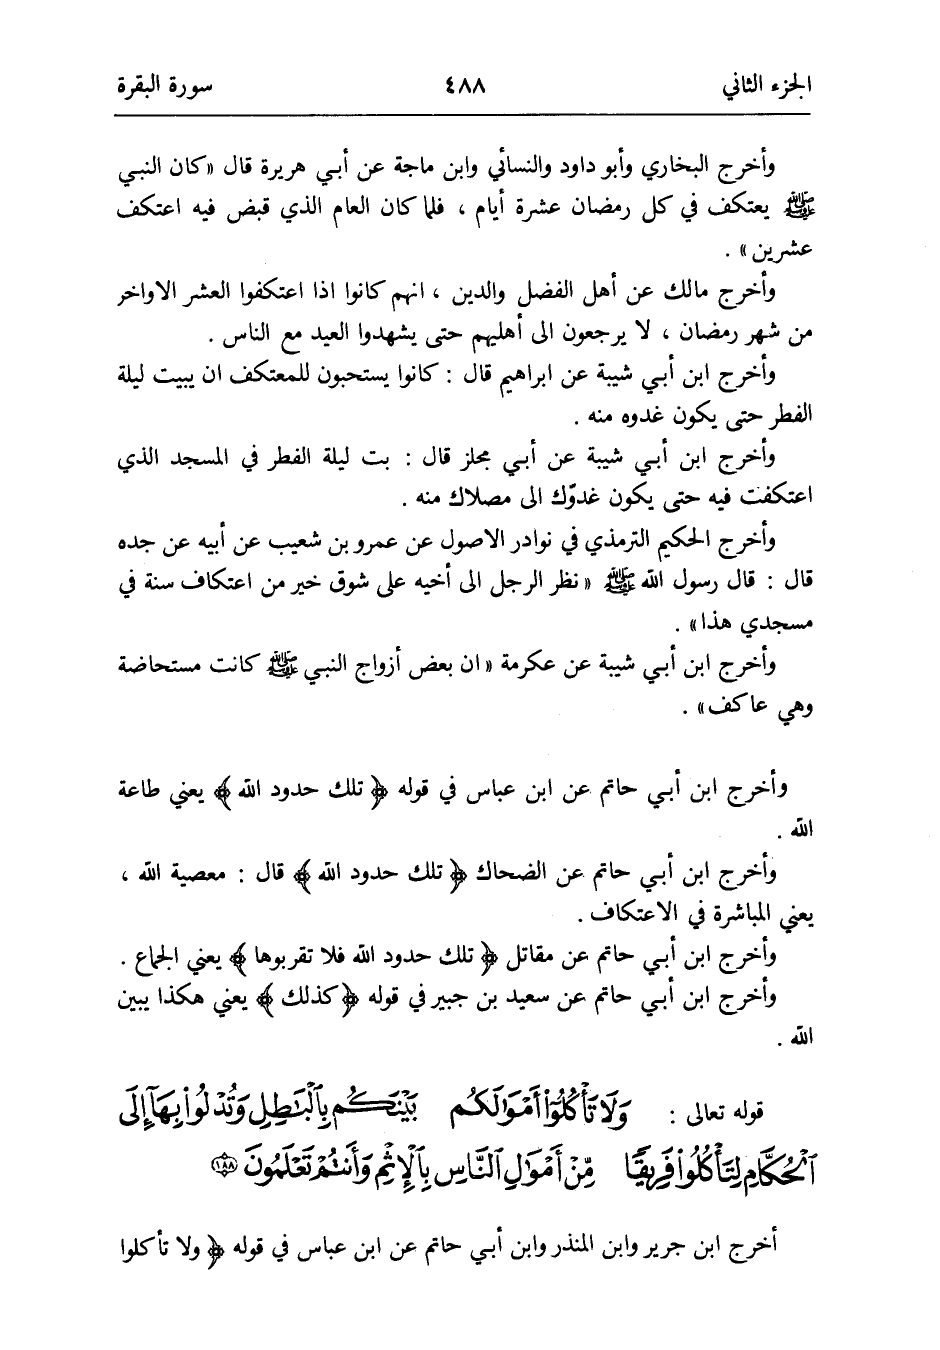 الجزء الثاني ٤٨٨ سورة البقرة
وأخرج البخاري وأبو داود والنسائي وابن ماجة عن أبي هريرة قال «كان النبي
ﷺ يعتكف في كل رمضان عشرة أيام ، فلما كان العام الذي قبض فيه اعتكف
عشرين» .
وأخرج مالك عن أهل الفضل والدين ، انهم كانوا اذا اعتكفوا العشر الاواخر
من شهر رمضان ، لا يرجعون الى أهليهم حتى يشهدوا العيد مع الناس .
وأخرج ابن أبي شيبة عن ابراهيم قال : كانوا يستحبون للمعتكف ان يبيت ليلة
الفطر حتى يكون غدوه منه .
وأخرج ابن أبي شيبة عن أبي مجلز قال : بت ليلة الفطر في المسجد الذي
اعتكفت فيه حتى يكون غدوّك الى مصلاك منه .
وأخرج الحكيم الترمذي في نوادر الاصول عن عمرو بن شعيب عن أبيه عن جده
قال : قال رسول الله ﷺ «نظر الرجل الى أخيه على شوق خير من اعتكاف سنة في
مسجدي هذا» .
وأخرج ابن أبي شيبة عن عكرمة «ان بعض أزواج النبي ﷺ كانت مستحاضة
وهي عاكف» .
وأخرج ابن أبي حاتم عن ابن عباس في قوله ﴿ تلك حدود الله ﴾ يعني طاعة
الله .
وأخرج ابن أبي حاتم عن الضحاك ﴿ تلك حدود الله ﴾ قال : معصية الله ،
يعني المباشرة في الاعتكاف .
وأخرج ابن أبي حاتم عن مقاتل ﴿ تلك حدود الله فلا تقربوها ﴾ يعني الجماع .
وأخرج ابن أبي حاتم عن سعيد بن جبير في قوله ﴿ كذلك ﴾ يعني هكذا يبين
الله .
قوله تعالى : وَلَا تَأْكُلُوٓا۟ أَمْوَٰلَكُم بَيْنَكُم بِٱلْبَٰطِلِ وَتُدْلُوا۟ بِهَآ إِلَى
ٱلْحُكَّامِ لِتَأْكُلُوا۟ فَرِيقًا مِّنْ أَمْوَٰلِ ٱلنَّاسِ بِٱلْإِثْمِ وَأَنتُمْ تَعْلَمُونَ ۝١٨٨
أخرج ابن جرير وابن المنذر وابن أبي حاتم عن ابن عباس في قوله ﴿ ولا تأكلوا